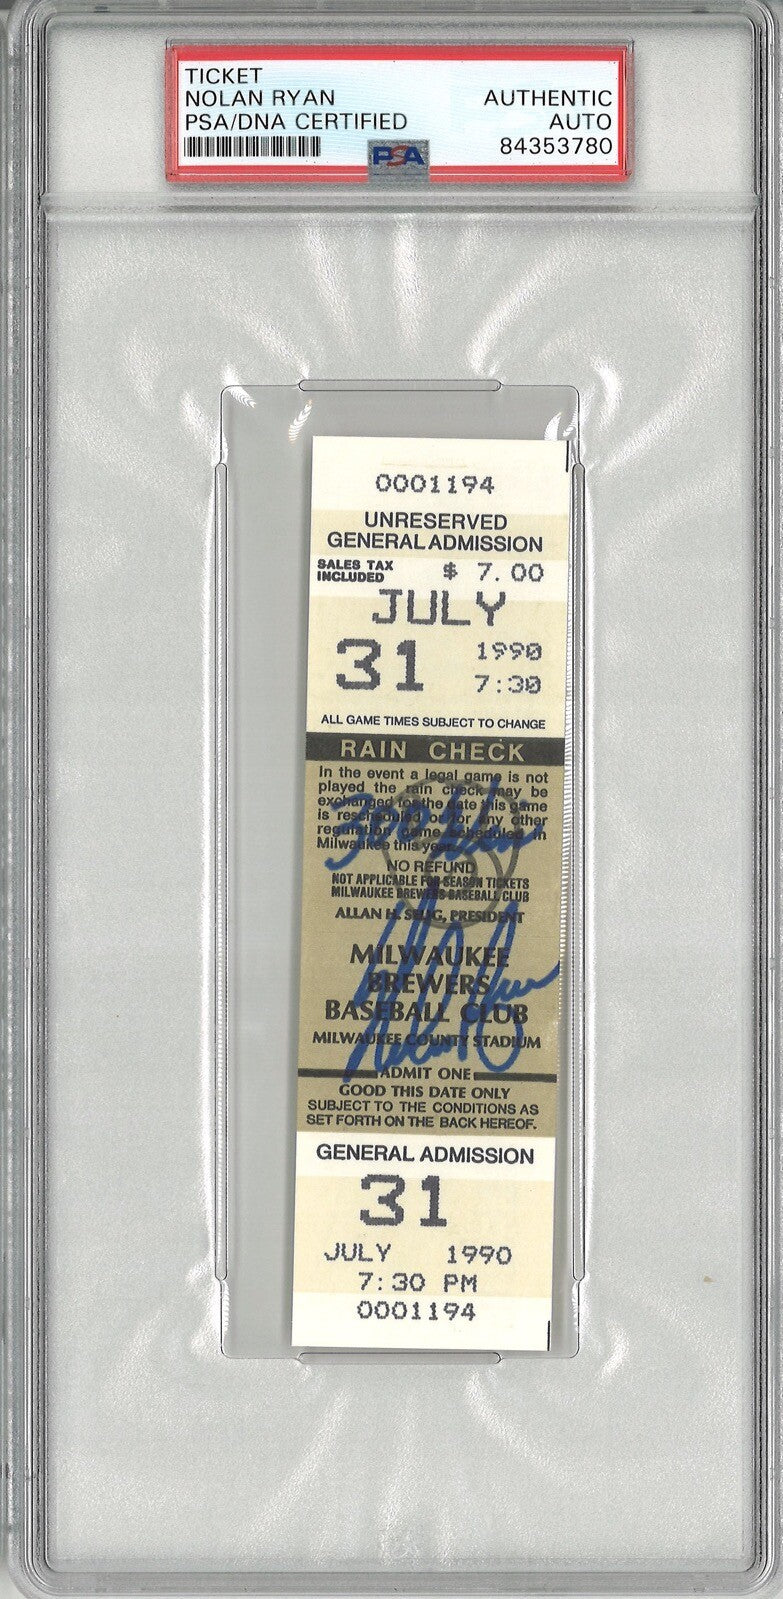 TICKET
NOLAN RYAN AUTHENTIC
PSA/DNA CERTIFIED AUTO
84353780
PSA
0001194
UNRESERVED
GENERAL ADMISSION
SALES TAX
INCLUDED $ 7.00
JULY
31 1990
7:30
ALL GAME TIMES SUBJECT TO CHANGE
RAIN CHECK
In the event a legal game is not
played the rain check may be
exchanged for the date this game
is rescheduled or for any other
regulation game scheduled in
Milwaukee this year.
300th Win
NO REFUND
NOT APPLICABLE FOR SEASON TICKETS
MILWAUKEE BREWERS BASEBALL CLUB
ALLAN H. SELIG, PRESIDENT
Nolan Ryan
MILWAUKEE
BREWERS
BASEBALL CLUB
MILWAUKEE COUNTY STADIUM
ADMIT ONE
GOOD THIS DATE ONLY
SUBJECT TO THE CONDITIONS AS
SET FORTH ON THE BACK HEREOF.
GENERAL ADMISSION
31
JULY 1990
7:30 PM
0001194